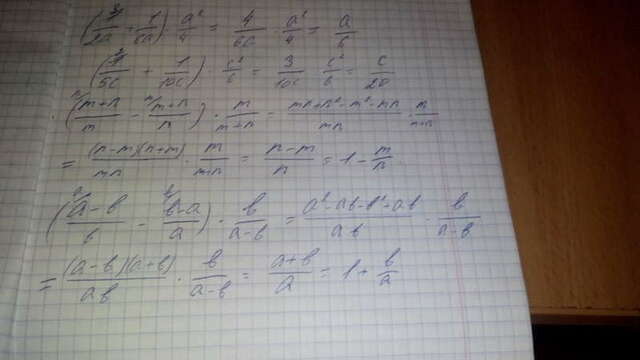 (³1/2a + 1/6a) · a²/4 = 4/6a · a²/4 = a/6
(²1/5c + 1/10c) · c²/6 = 3/10c · c²/6 = c/20
(ⁿ m+n/m - ᵐ m+n/n) · m/m+n = mn+n²-m²-mn/mn · m/m+n
= (n-m)(n+m)/mn · m/m+n = n-m/n = 1 - m/n
(ᵃ a-b/b - ᵇ b-a/a) · b/a-b = a²-ab-b²+ab/ab · b/a-b
= (a-b)(a+b)/ab · b/a-b = a+b/a = 1 + b/a